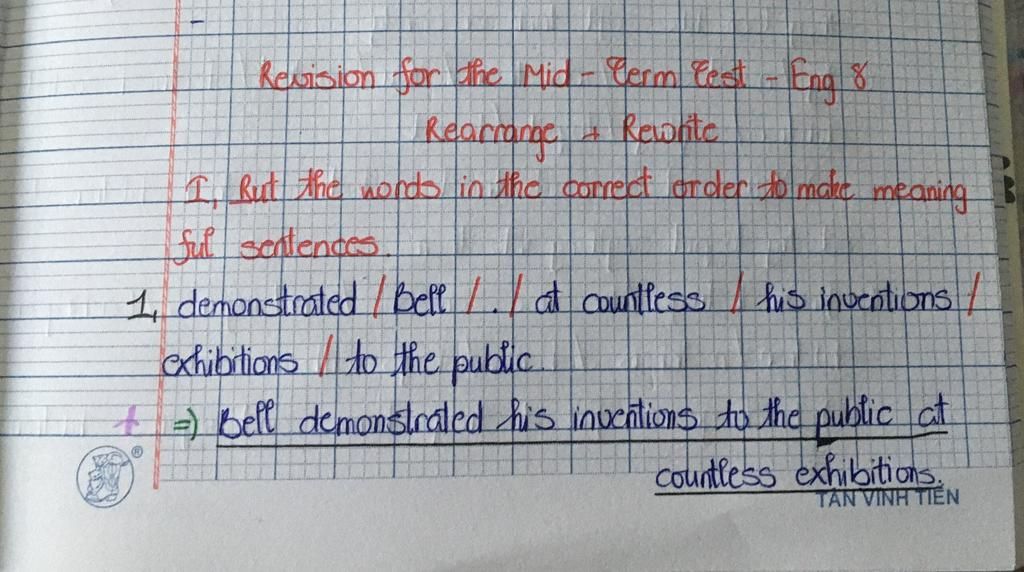 Revision for the Mid - Term Test - Eng 8
Rearrange + Rewrite
I, Put the words in the correct order to make meaning
ful sentences.
1, demonstrated / Bell / . / at countless / his inventions /
exhibitions / to the public.
+ => Bell demonstrated his inventions to the public at
countless exhibitions.
®
TÂN VĨNH TIẾN